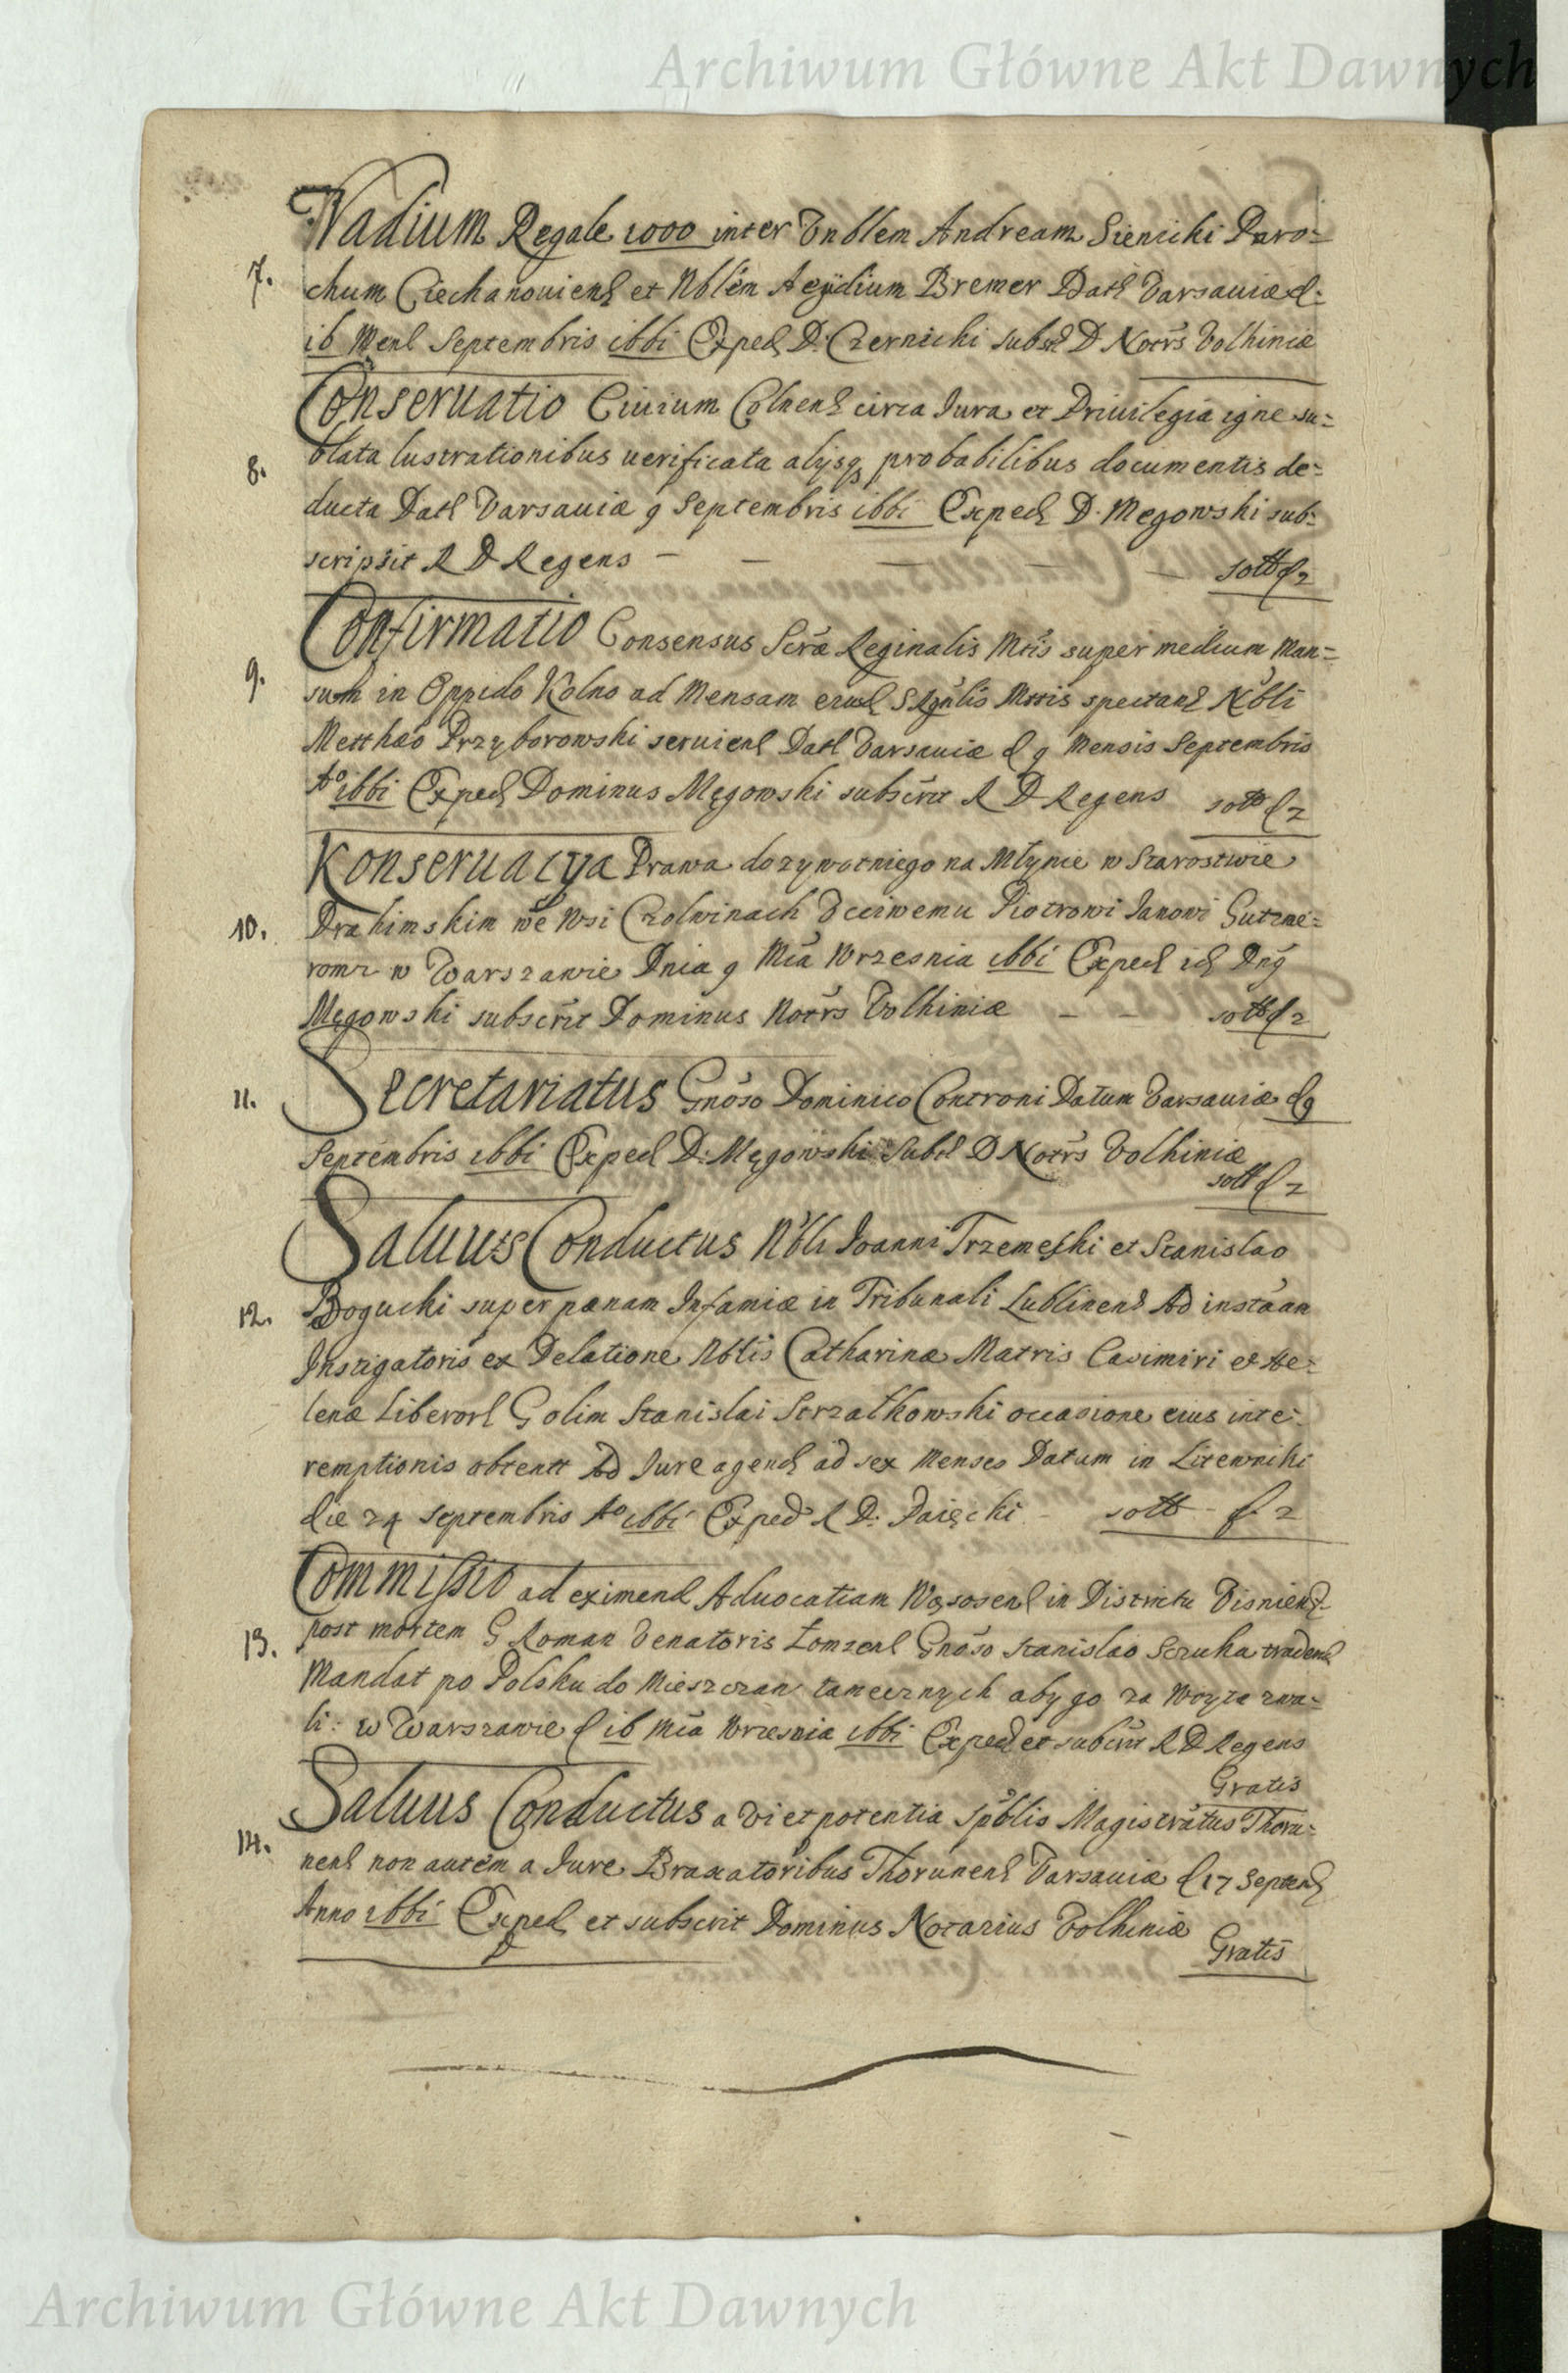 Archiwum Główne Akt Dawnych
Vadium Regale 1000 inter Vnblem Andream Sienicki Paro=
7. chum Ciechanouiens et Nblem Aegidium Bremer Dat Varsauiæ d.
16 Mens Septembris 1661 Exped D. Czernicki subs D Notrs Volhiniæ
Conseruatio Ciuium Colnens circa Iura et Priuilegia igne su=
8. blata lustrationibus uerificata alijsq probabilibus documentis de=
ducta Dat Varsauiæ 9 Septembris 1661 Exped D. Megowski sub=
scripsit R D Regens - - - - - sott f 2
Confirmatio Consensus Scræ Reginalis Mtis super medium Man=
9. sum in Oppido Kolno ad Mensam eiusd S Rgnlis Mttis spectans Nbli
Matthæo Przyborowski seruiens Dat Varsauiæ d 9 Mensis Septembris
Ao 1661 Exped Dominus Męgowski subscrit R D Regens sott f 2
Konseruacya Prawa dozywotniego na Młynie w Starostwie
10. Drahimskim we Wsi Czolwinach Vcciwemu Piotrowi Janowi Gutzme=
romi w Warszawie Dnia 9 Mca Wrzesnia 1661 Exped id Dng
Męgowski subscrit Dominus Notrs Volhiniæ - - sott f 2
11. Secretariatus Gnoso Dominico Controni Datum Varsauiæ d 9
Septembris 1661 Exped D. Męgowski Subs D Notrs Volhiniæ
sott f 2
Saluus Conductus Nbli Joanni Trzemeski et Stanislao
12. Bogucki super pænam Infamiæ in Tribunali Lublinens Ad instaan
Instigatoris ex Delatione Nblis Catharinæ Matris Casimiri et He=
lenæ Liberor Golim Stanislai Strzałkowski occasione eius inte=
remptionis obtentt Ad Iure agend ad sex Menses Datum in Litewniki
die 24 Septembris Ao 1661 Exped R D. - sott - f 2
Commissio ad eximend Aduocatiam Wąsosens in Districtu Visniens
13. post mortem G Roman Venatoris Łomzens Gnoso Stanislao Szzuka tradend
Mandat po Polsku do Mieszczan tamecznych aby go za Woyta zna=
li: w Warszawie d 16 Mca Wrzesnia 1661 Exped et subscrit R D Regens
Gratis
Saluus Conductus a Vi et potentia Spblis Magistratus Thoru=
14. nens non autem a Iure Braxatoribus Thorunens Varsauiæ d 17 Septemb
Anno 1661 Exped et subscrit Dominus Notarius Volhiniæ
Gratis
Archiwum Główne Akt Dawnych